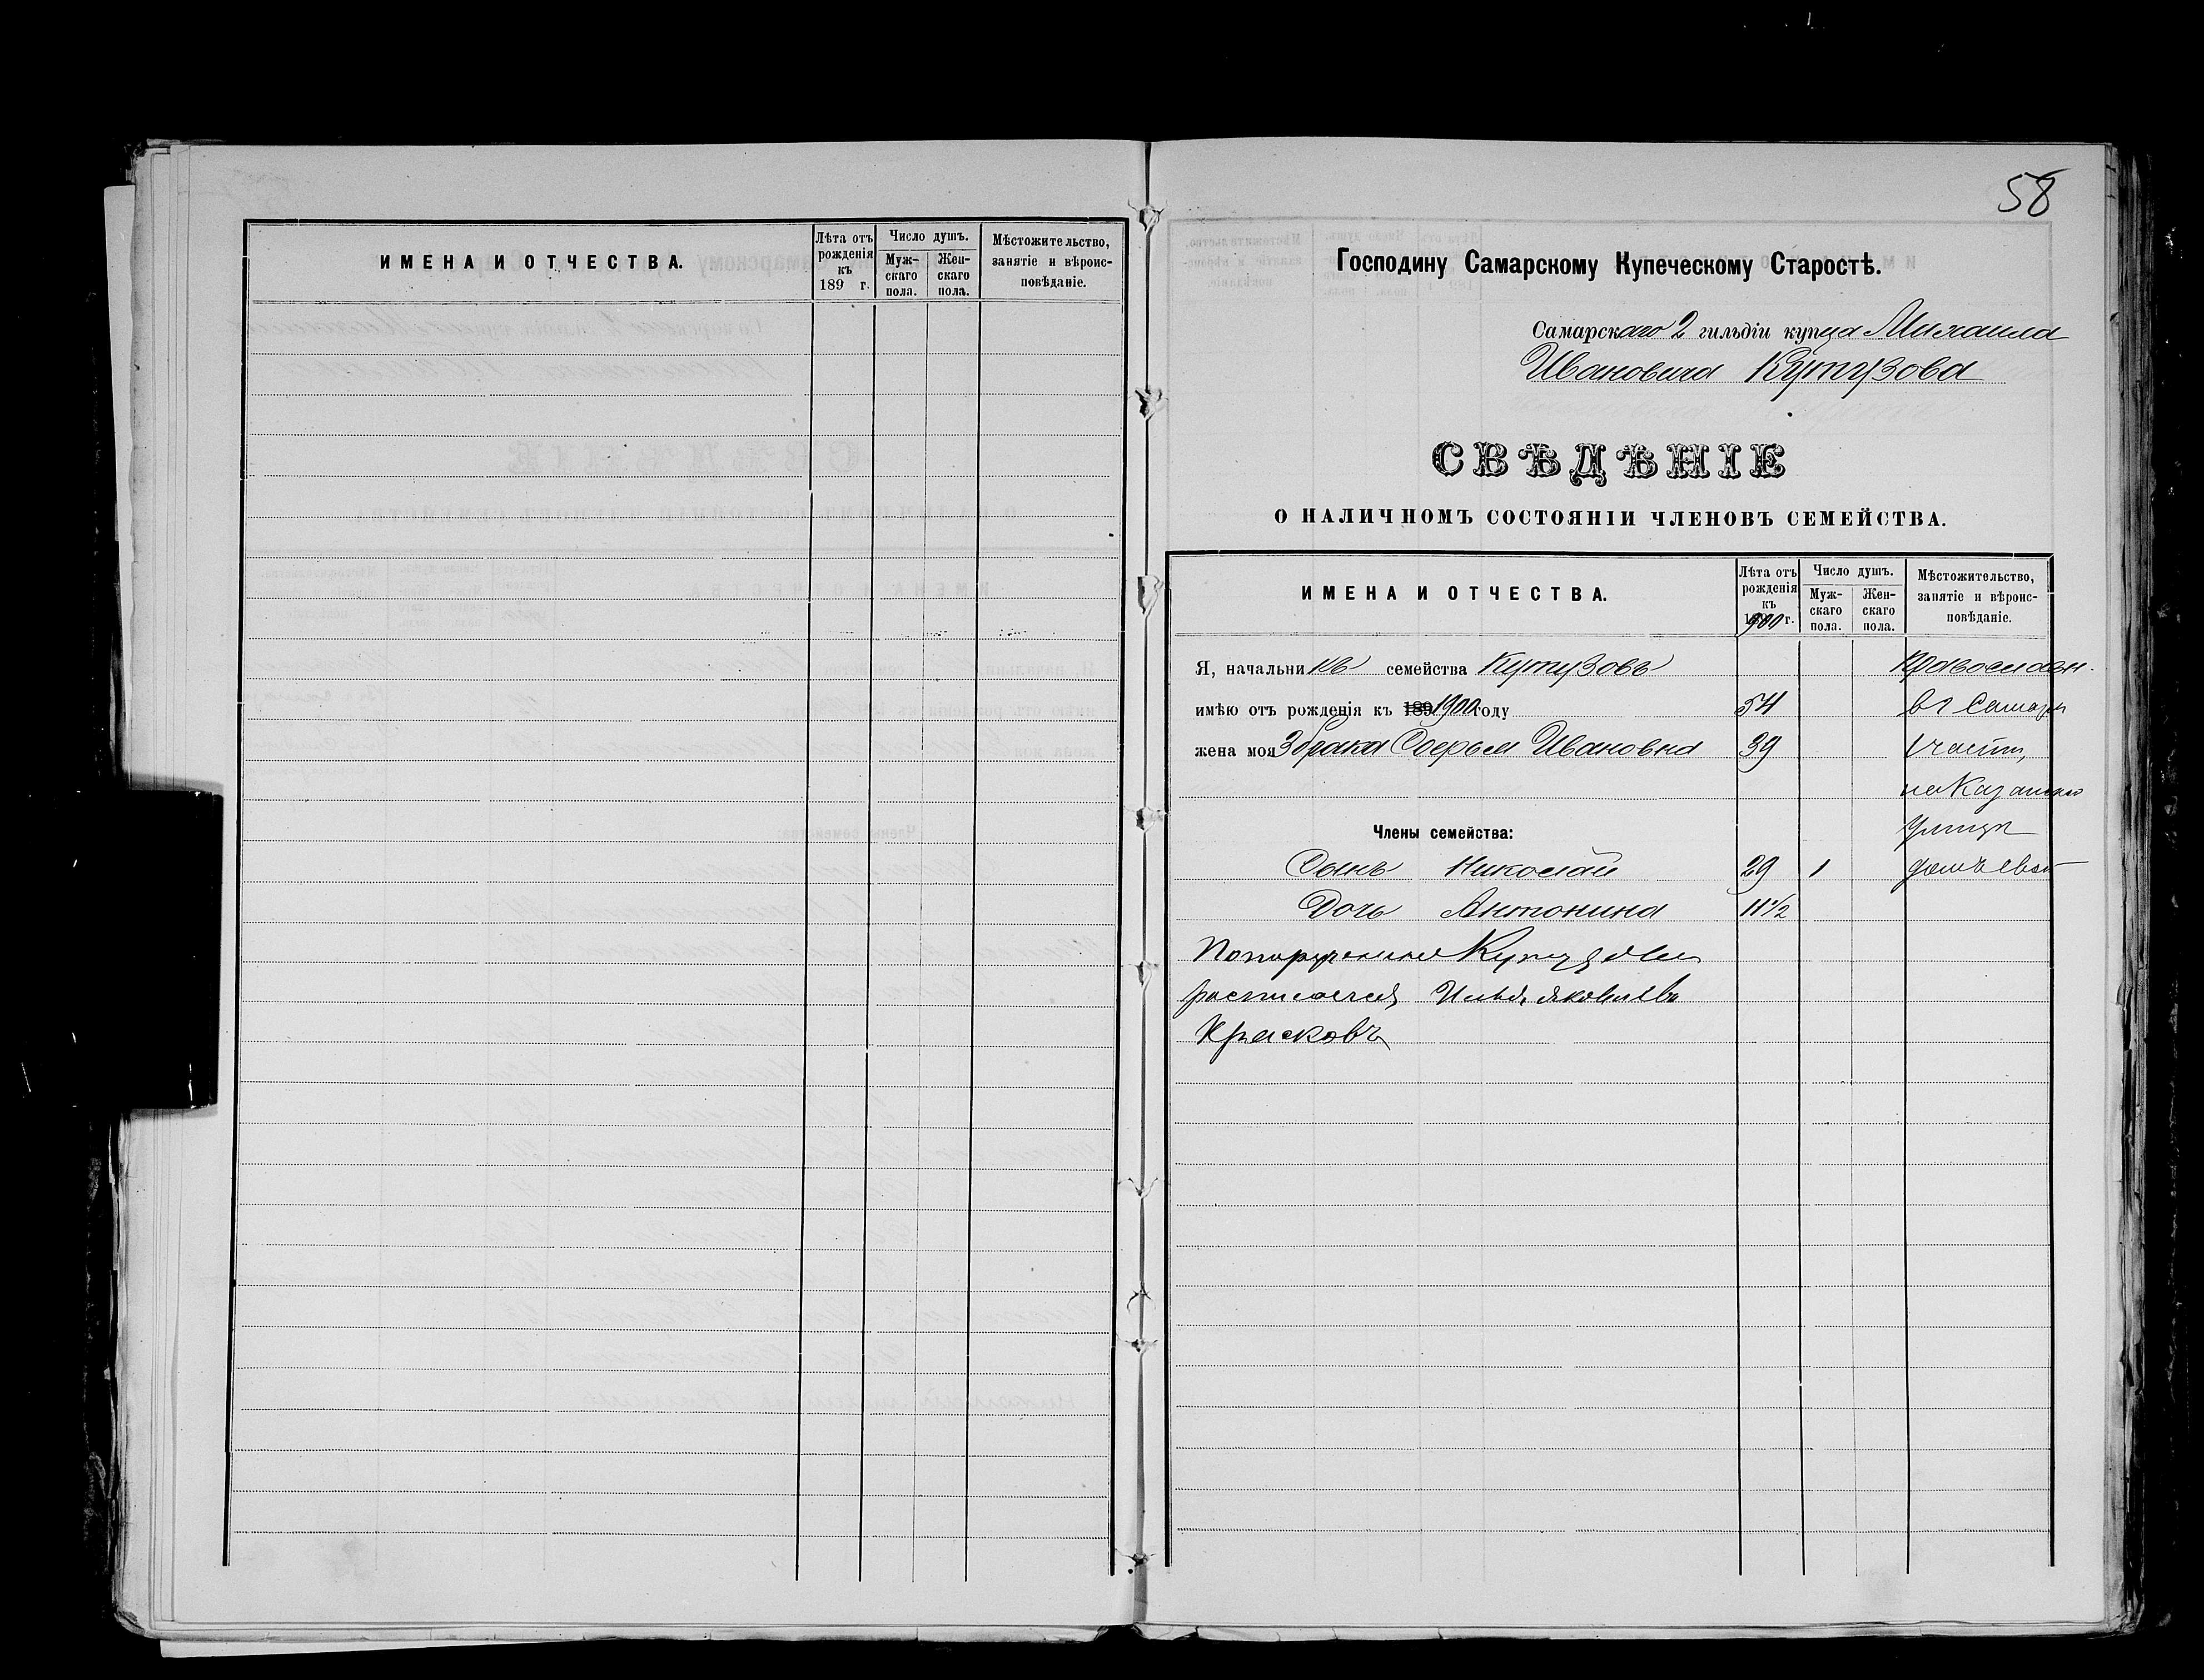 ИМЕНА И ОТЧЕСТВА.
Лѣта отъ рожденія къ 189 г.
Число душъ.
Муж-скаго пола.
Жен-скаго пола.
Мѣстожительство, занятіе и вѣроис-повѣданіе.
58
Господину Самарскому Купеческому Старостѣ.
Самарскаго 2 гильдіи купца Михаила
Ивановича Кутузова
СВѢДѢНІЕ
О НАЛИЧНОМЪ СОСТОЯНІИ ЧЛЕНОВЪ СЕМЕЙСТВА.
ИМЕНА И ОТЧЕСТВА.
Лѣта отъ рожденія къ 1900 г.
Число душъ.
Муж-скаго пола.
Жен-скаго пола.
Мѣстожительство, занятіе и вѣроис-повѣданіе.
Я, начальникъ семейства Кутузовъ Православн.
имѣю отъ рожденія къ 189 1900 году 54 въ г Самарѣ
жена моя 3 брака Софья Ивановна 39 1 части,
на Казанской
Члены семейства: улицѣ
Сынъ Николай 29 1 домъ свой
Дочь Антонина 11 1/2
По порученію Кутузова
росписался Илья Яковлевъ
Красковъ